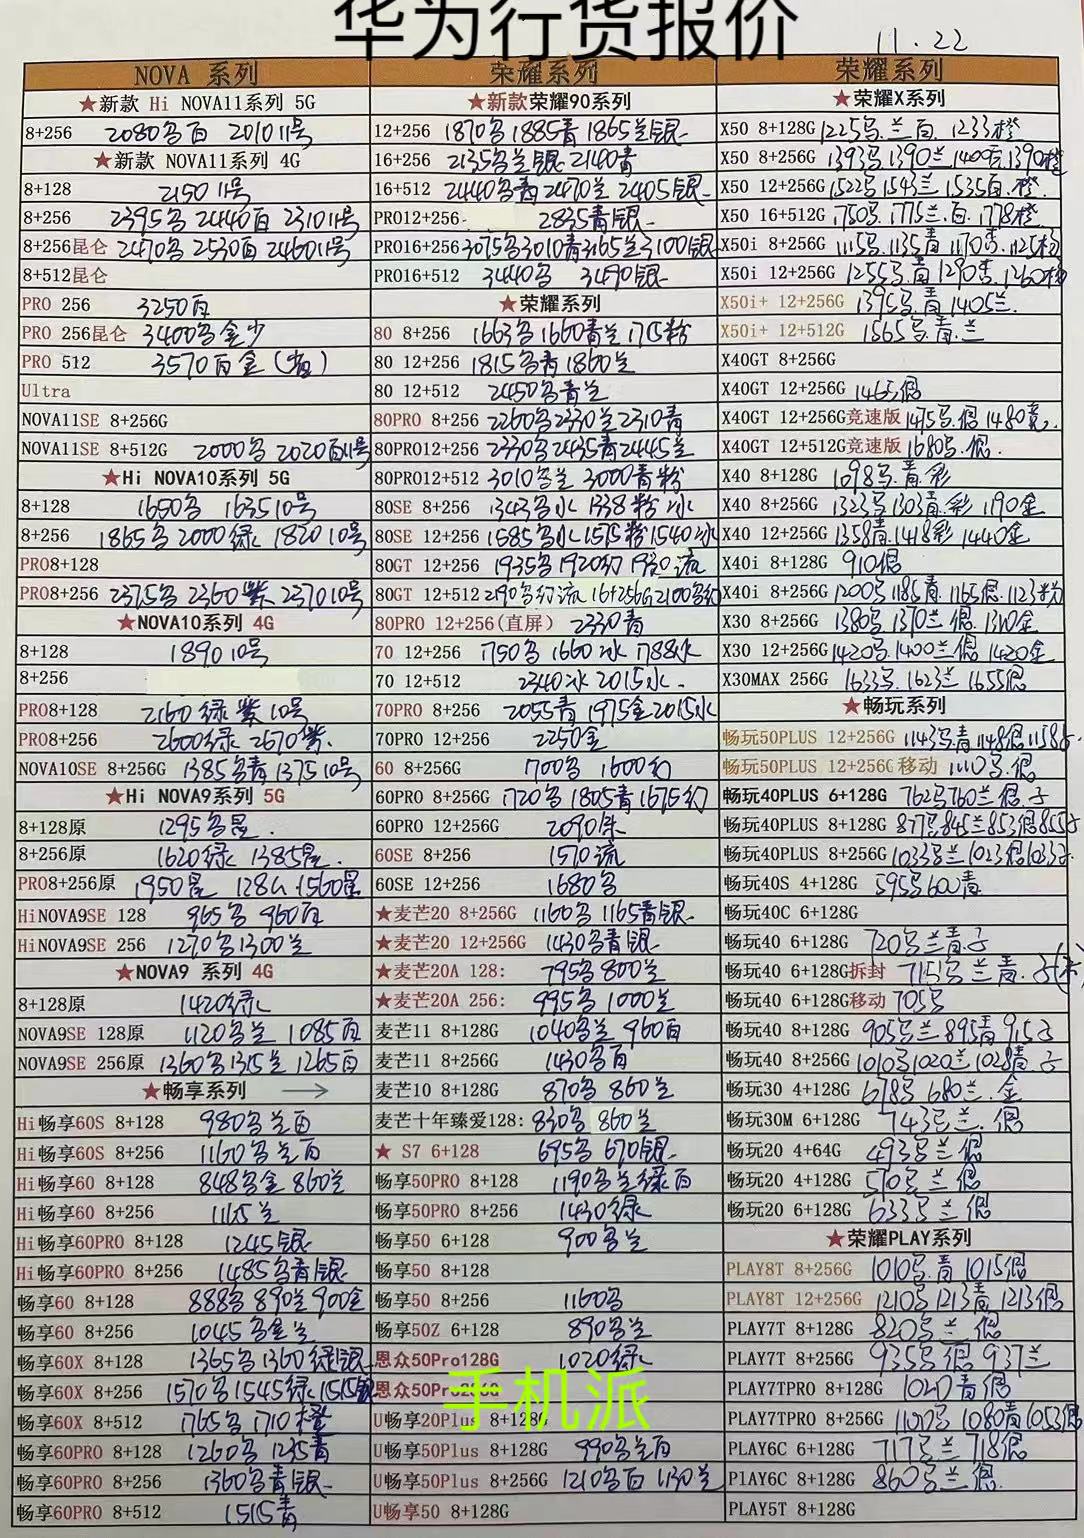 华为行货报价
11.22
NOVA 系列
★新款 Hi NOVA11系列 5G
8+256 2080名白 2010 11号
★新款 NOVA11系列 4G
8+128 2150 11号
8+256 2395名 2440白 2310 11号
8+256昆仑 2470名 2530白 2460 11号
8+512昆仑
PRO 256 3250白
PRO 256昆仑 3400名金少
PRO 512 3570白金
Ultra
NOVA11SE 8+256G
NOVA11SE 8+512G 2000名 2020白11号
★Hi NOVA10系列 5G
8+128 1650名 1635 10号
8+256 1865名 2000绿 1820 10号
PRO8+128
PRO8+256 2375名 2360紫 2370 10号
★NOVA10系列 4G
8+128 1890 10号
8+256
PRO8+128 2160绿紫 10号
PRO8+256 2600绿 2670紫.
NOVA10SE 8+256G 1385名青 1375 10号
★Hi NOVA9系列 5G
8+128原 1295名星.
8+256原 1620绿 1385星.
PRO8+256原 1950星 128G 1560星
HiNOVA9SE 128 965名 960白
HiNOVA9SE 256 1270名 1300兰
★NOVA9 系列 4G
8+128原 1420绿
NOVA9SE 128原 1120名兰 1085白
NOVA9SE 256原 1360名 1315兰 1265白
★畅享系列 →
Hi畅享60S 8+128 980名兰白
Hi畅享60S 8+256 1160名兰白
Hi畅享60 8+128 848名金 860兰
Hi畅享60 8+256 1165兰
Hi畅享60PRO 8+128 1245银
Hi畅享60PRO 8+256 1485名青银
畅享60 8+128 888名 890兰 900金
畅享60 8+256 1045名金兰
畅享60X 8+128 1365名 1360绿银
畅享60X 8+256 1570名 1545绿 1515银
畅享60X 8+512 1765名 1710橙
畅享60PRO 8+128 1260名 1235青
畅享60PRO 8+256 1360名青银
畅享60PRO 8+512 1515青
荣耀系列
★新款荣耀90系列
12+256 1870名 1885青 1865兰银
16+256 2135名兰银 2140青
16+512 2440名青 2470兰 2405银
PRO12+256 2835青银
PRO16+256 3075名 3010青 3165兰 3100银
PRO16+512 3440名 3490银
★荣耀系列
80 8+256 1663名 1660青兰 1715粉
80 12+256 1815名青 1860兰
80 12+512 2450名青兰
80PRO 8+256 2260名 2330兰 2310青
80PRO12+256 2330名 2435青 2445兰
80PRO12+512 3010名兰 3000青粉
80SE 8+256 1343名水 1338粉冰
80SE 12+256 1585名水 1575粉 1540冰
80GT 12+256 1935名 1920幻 1930流
80GT 12+512 2190名幻流 16+256G 2100名幻
80PRO 12+256(直屏) 2330青
70 12+256 1750名 1660冰 1788水
70 12+512 2340冰 2015水.
70PRO 8+256 2055青 1975金 2015水
70PRO 12+256 2250金
60 8+256G 1700名 1600幻
60PRO 8+256G 1720名 1805青 1675幻
60PRO 12+256G
60SE 8+256 1570流
60SE 12+256 1680名
★麦芒20 8+256G 1160名 1165青银
★麦芒20 12+256G 1430名青银
★麦芒20A 128: 795名 800兰
★麦芒20A 256: 995名 1000兰
麦芒11 8+128G 1040名兰 960白
麦芒11 8+256G 1430名白
麦芒10 8+128G 870名 860兰
麦芒十年臻爱128: 830名 860兰
★ S7 6+128 695名 670银
畅享50PRO 8+128 1190名兰绿白
畅享50PRO 8+256 1430绿
畅享50 6+128 900名兰
畅享50 8+128
畅享50 8+256 1160名
畅享50Z 6+128 890名兰
恩众50Pro128G 1020绿
恩众50Pro256G
手机派
U畅享20Plus 8+128G
U畅享50Plus 8+128G 990名兰白
U畅享50Plus 8+256G 1210名白 1130兰
U畅享50 8+128G
荣耀系列
★荣耀X系列
X50 8+128G 1225名.兰白. 1233橙
X50 8+256G 1393名 1390兰 1390橙
X50 12+256G 1522名 1543兰 1535白.橙.
X50 16+512G 1750名. 1775兰.白. 1778橙
X50i 8+256G 1115名. 1135青 1125橙
X50i 12+256G 1255名.青 1260橙
X50i+ 12+256G 1395名.青 1405兰.
X50i+ 12+512G 1565名.青.兰
X40GT 8+256G
X40GT 12+256G 1465
X40GT 12+256G竞速版 1475名
X40GT 12+512G竞速版 1680名.
X40 8+128G 1098名.青.彩
X40 8+256G 1323名 1303青.彩 1190金
X40 12+256G 1358青. 1418彩 1440金
X40i 8+128G 910
X40i 8+256G 1200名 1185青.
X30 8+256G 1380名. 1370兰
X30 12+256G 1420名. 1400兰 1420金
X30MAX 256G 1633名. 1623兰 1655
★畅玩系列
畅玩50PLUS 12+256G 1143名.青
畅玩50PLUS 12+256G 移动 1110名.
畅玩40PLUS 6+128G 762名 760兰
畅玩40PLUS 8+128G 877名 845兰 853
畅玩40PLUS 8+256G 1033名兰 1023
畅玩40S 4+128G 595名 600青
畅玩40C 6+128G
畅玩40 6+128G 720名兰青子
畅玩40 6+128G拆封 715名兰青.
畅玩40 6+128G移动 705名
畅玩40 8+128G 905名兰 895青
畅玩40 8+256G 1010名 1020兰 1028青 子
畅玩30 4+128G 678名 680兰.金
畅玩30M 6+128G 743名兰.
畅玩20 4+64G 493名兰
畅玩20 4+128G 570名兰
畅玩20 6+128G 633名兰
★荣耀PLAY系列
PLAY8T 8+256G 1010名.青 1015
PLAY8T 12+256G 1210名 1213青 1213
PLAY7T 8+128G 820名兰
PLAY7T 8+256G 935名 937兰
PLAY7TPRO 8+128G 1020青
PLAY7TPRO 8+256G 1080青 1053
PLAY6C 6+128G 717名兰 718
PLAY6C 8+128G 860名兰.
PLAY5T 8+128G